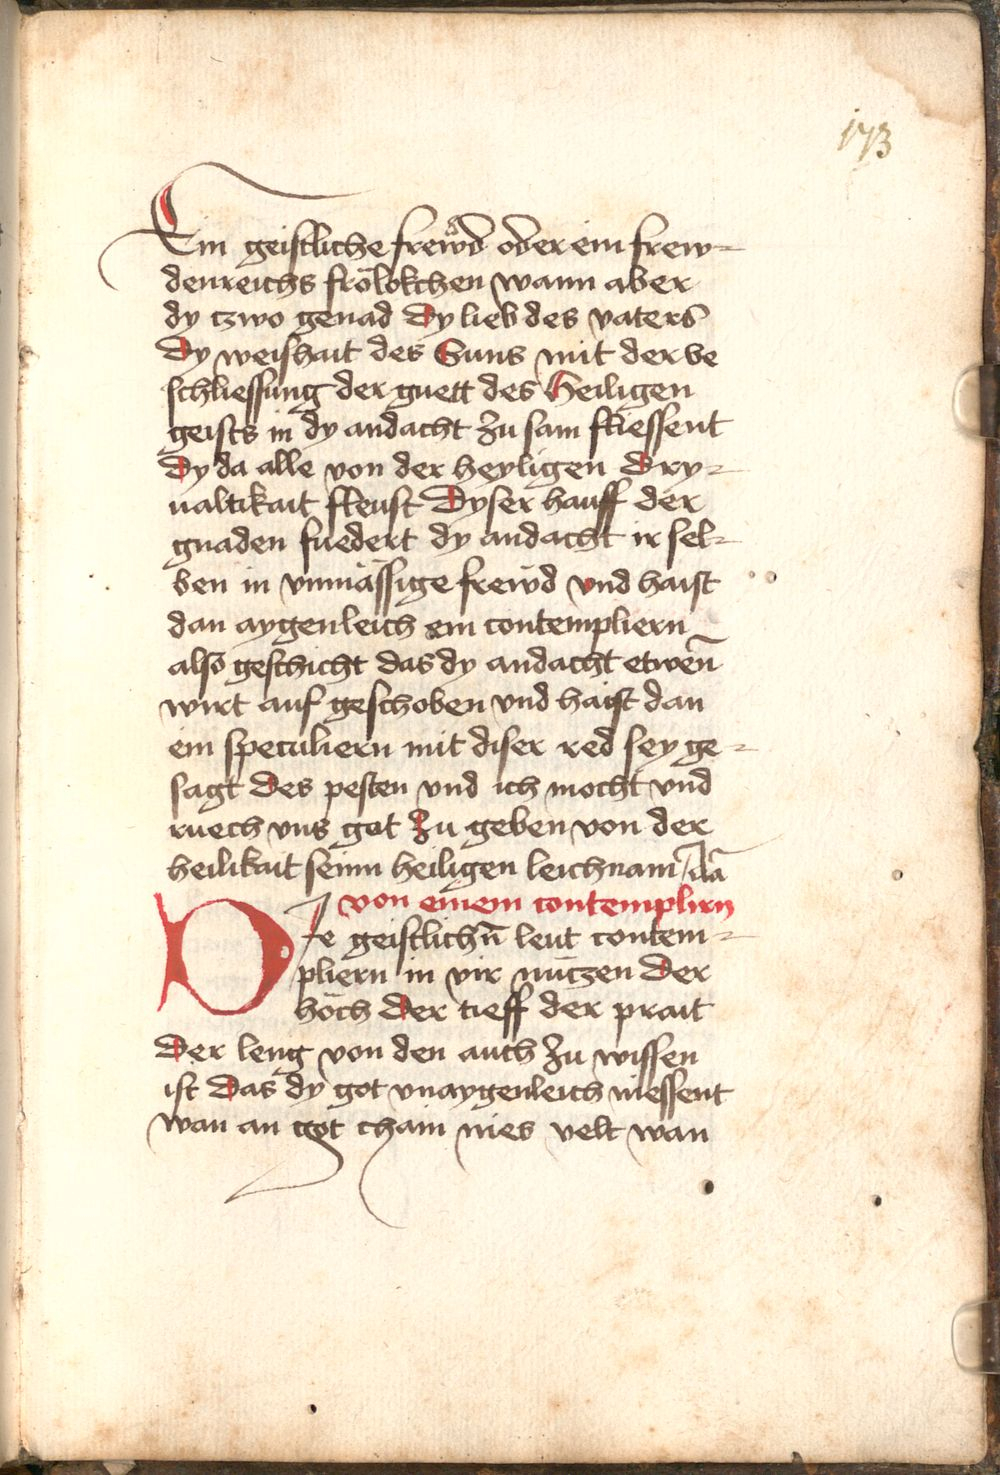 173
Ein geistliche frewd oder ein frew-
denreichs frölokchen wann aber
dy czwo genad Dy lieb des vaters
Dy weishait des Suns mit der be
schliessung der guett des Heiligen
geists in dy andacht zu sam fliessent
Dy da alle von der heyligen Dry-
ualtikait fleust Dyser hauff der
gnaden fuedert dy andacht ir sel-
ben in vnmässige frewd vnd haist
dan aygenleich ein contempliern
also geschicht das dy andacht etwen̄
wirt auf geschoben vnd haist dan
ein speculiern mit diser red sey ge-
sagt Des pesten vnd ich mocht vnd
ruech vns got Zu geben von der
heilikait seinn heiligen leichnam da
von einem contemplirn
DJe geistlichn̄ leut contem-
pliern in vir nüczen Der
höch Der tieff der prait
Der leng von den auch zu wissen
ist Das dy got vnaygenleich niessent
wan an got chain nies velt wan